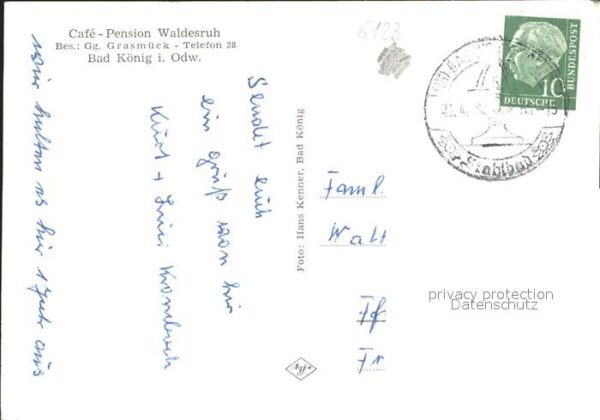 Café - Pension Waldesruh
Bes.: Gg. Grasmück - Telefon 38
Bad König i. Odw.
6123
DEUTSCHE
BUNDESPOST
10
Stahlbad
Sendet euch
ein gruß von hir
Kurt +
wir halten es hir 1 Jahr aus
Foto: Hans Kenner, Bad König
Faml.
Walt
Ff
Fr
privacy protection
Datenschutz